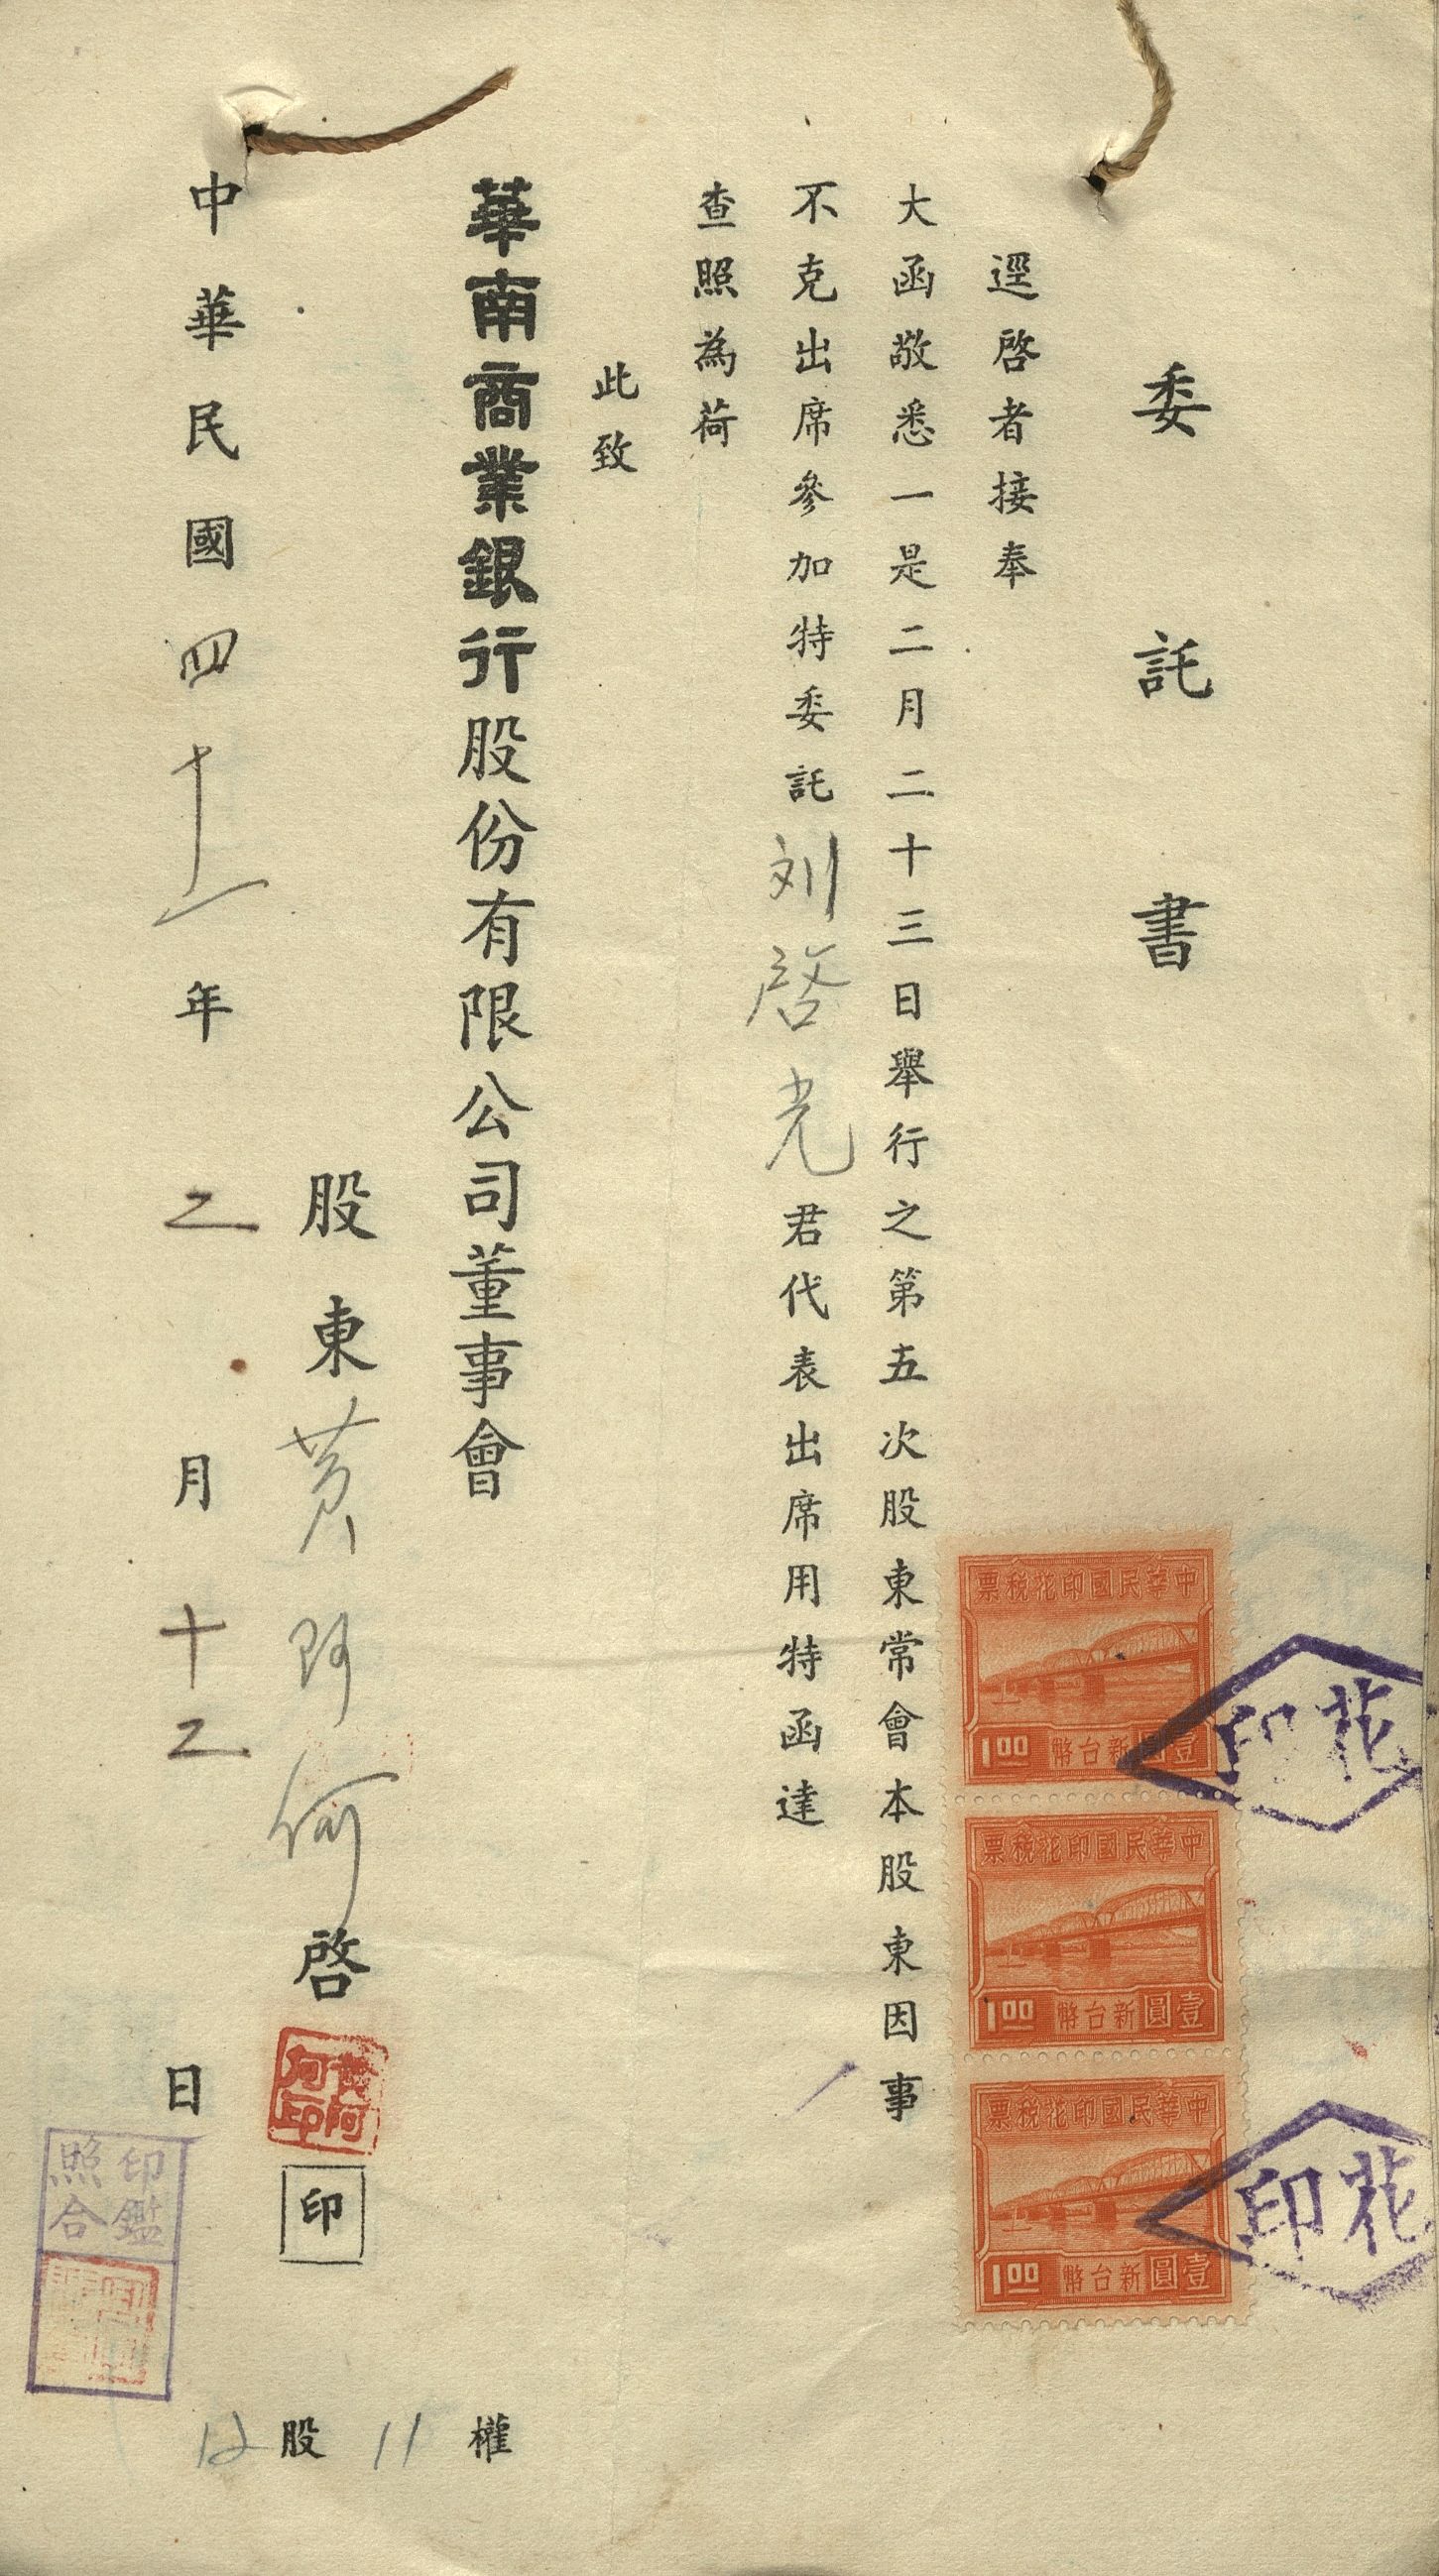 委託書
逕啓者接奉
大函敬悉一是二月二十三日舉行之第五次股東常會本股東因事
不克出席參加特委託刘啓光君代表出席用特函達
查照為荷
此致
華南商業銀行股份有限公司董事會
股東黄阿何啓
黃阿何印
印
中華民國四十一年二月十二日
12股11權
印鑑
照合
中華民國印花稅票
1.00 新台幣壹圓
中華民國印花稅票
1.00 新台幣壹圓
中華民國印花稅票
1.00 新台幣壹圓
印花
印花